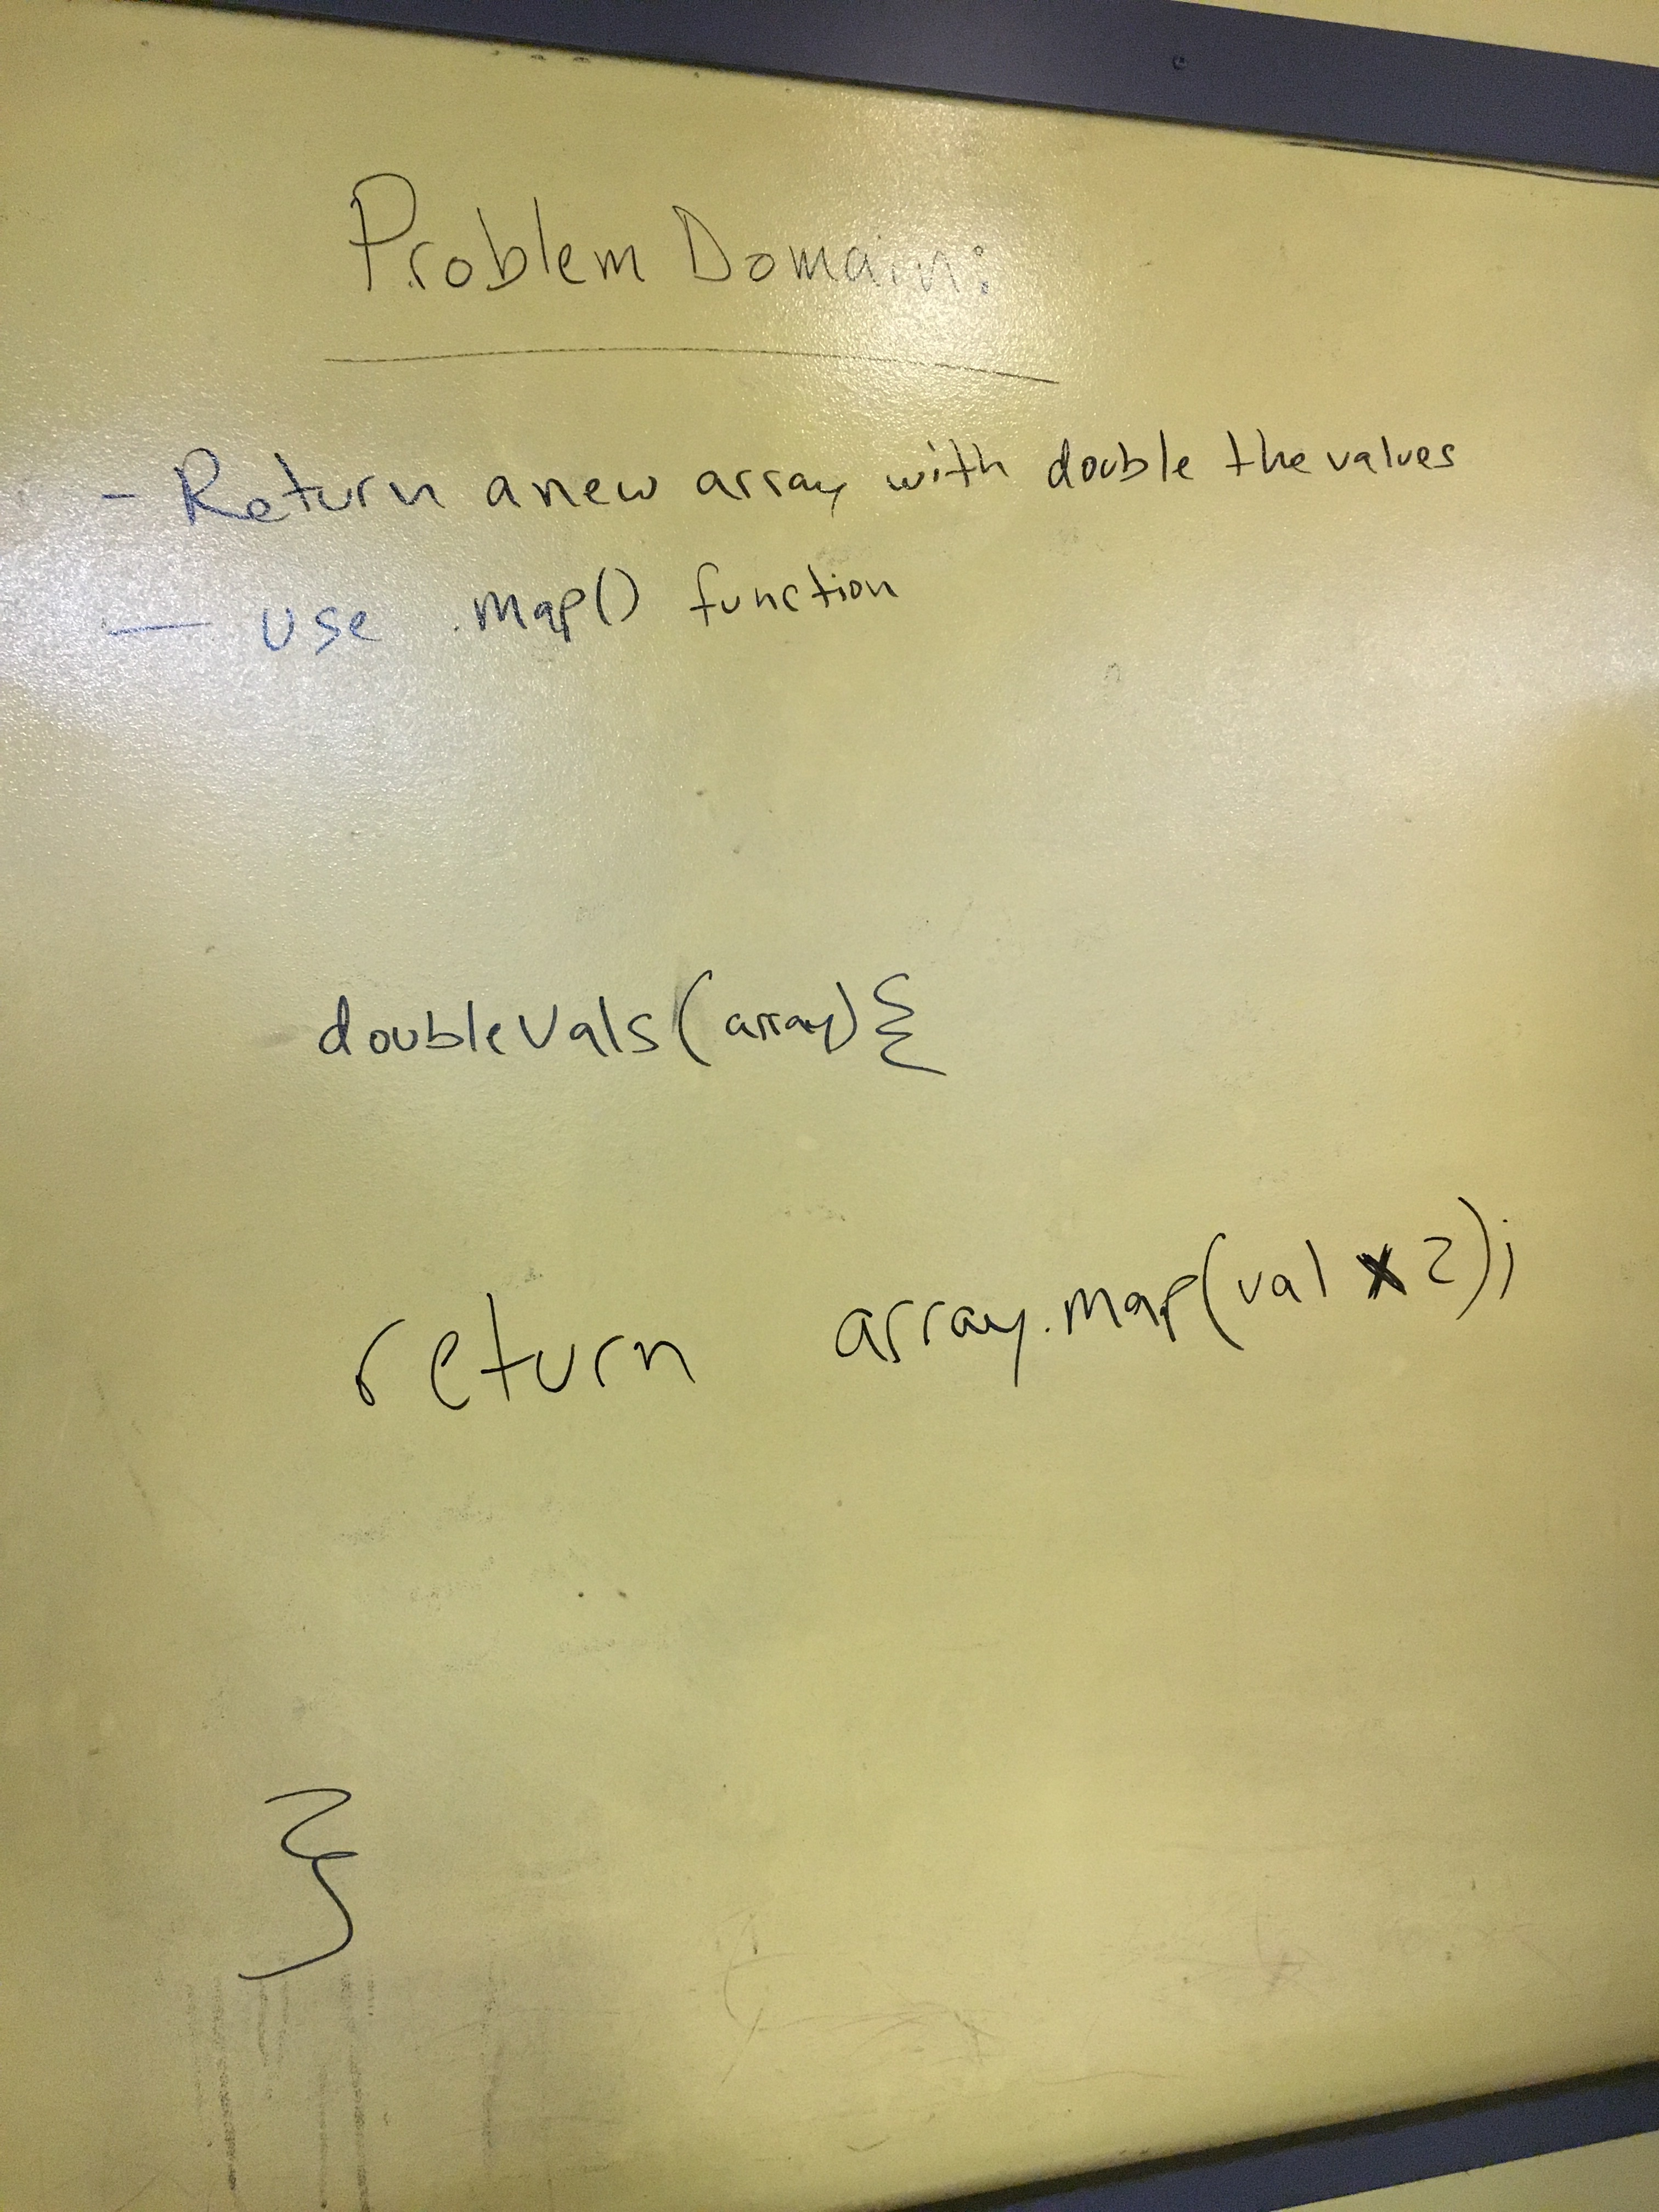 Problem Domain:
- Return a new array with double the values
- use .map() function
doubleVals(array){
return array.map(val * 2);
}